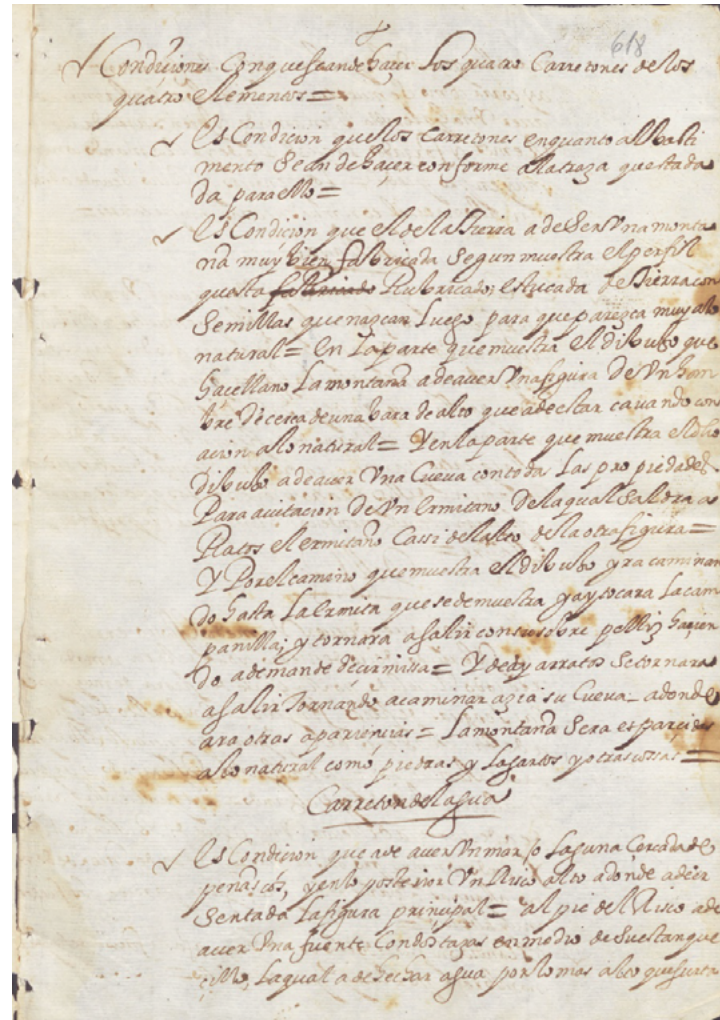 618
Condiçiones Conque sean de haçer Los quatro Carretones de los
quatro elementos =
Es Condicion que los carretones en quanto al basti
mento Sean de haçer conforme a la traza questa da
da para ello =
Es Condicion que el de la tierra a de Ser Una monta
ña muy bien fabricada Segun muestra el perfil
questa Rubricado; estucada de tierra con
Semillas que nazcan Luego para que parezca muy alo
natural = en la parte que muestra el dibuxo que
haçe llano La montaña a de aver Una figura De Un hom
bre De cerca de una bara de alto que a de estar cavando con
acion alo natural = Y en la parte que muestra el dho
dibuxo a de aver Una Cueva con todas Las propiedades
Para avitacion De Un Ermitaño De la qual Saldra a
Ratos el ermitaño Cassi del alto de la otra figura =
Y Por el camino que muestra el dibuxo yra caminan
do hasta La Ermita que se demuestra y ay tocara La cam
panilla; y tornara a salir con su sobrepelliz haçien
do ademan de decir missa = Y de ay arratos Se tornara
a salir tornando a caminar azia su Cueva adonde
ara otras apariencias = La montaña Sera esparcida
alo natural como piedras y Lagartos y otras cossas =
Carreton del agua
Es Condicion que a de aver Un mar / o Laguna Cercada de
peñascos, y en lo posterior Un Risco alto adonde a de ir
Sentada La figura principal = al pie del Risco a de
aver Una fuente Con dos tazas en medio de Su estanque
cillo, La qual a de hechar agua por lo mas alto